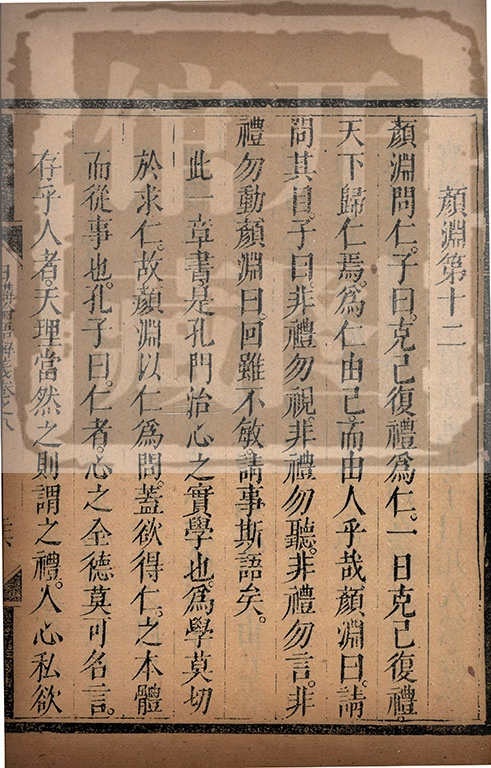 顏淵第十二
顏淵問仁。子曰。克己復禮爲仁。一日克己復禮。
天下歸仁焉。爲仁由己。而由人乎哉。顏淵曰。請
問其目。子曰。非禮勿視。非禮勿聽。非禮勿言。非
禮勿動。顏淵曰。回雖不敏。請事斯語矣。
此一章書。是孔門治心之實學也。爲學莫切
於求仁。故顏淵以仁爲問。蓋欲得仁。之本體
而從事也。孔子曰。仁者。心之全德。莫可名言。
存乎人者。天理當然之則。謂之禮。人心私欲
日講四書解義卷之八